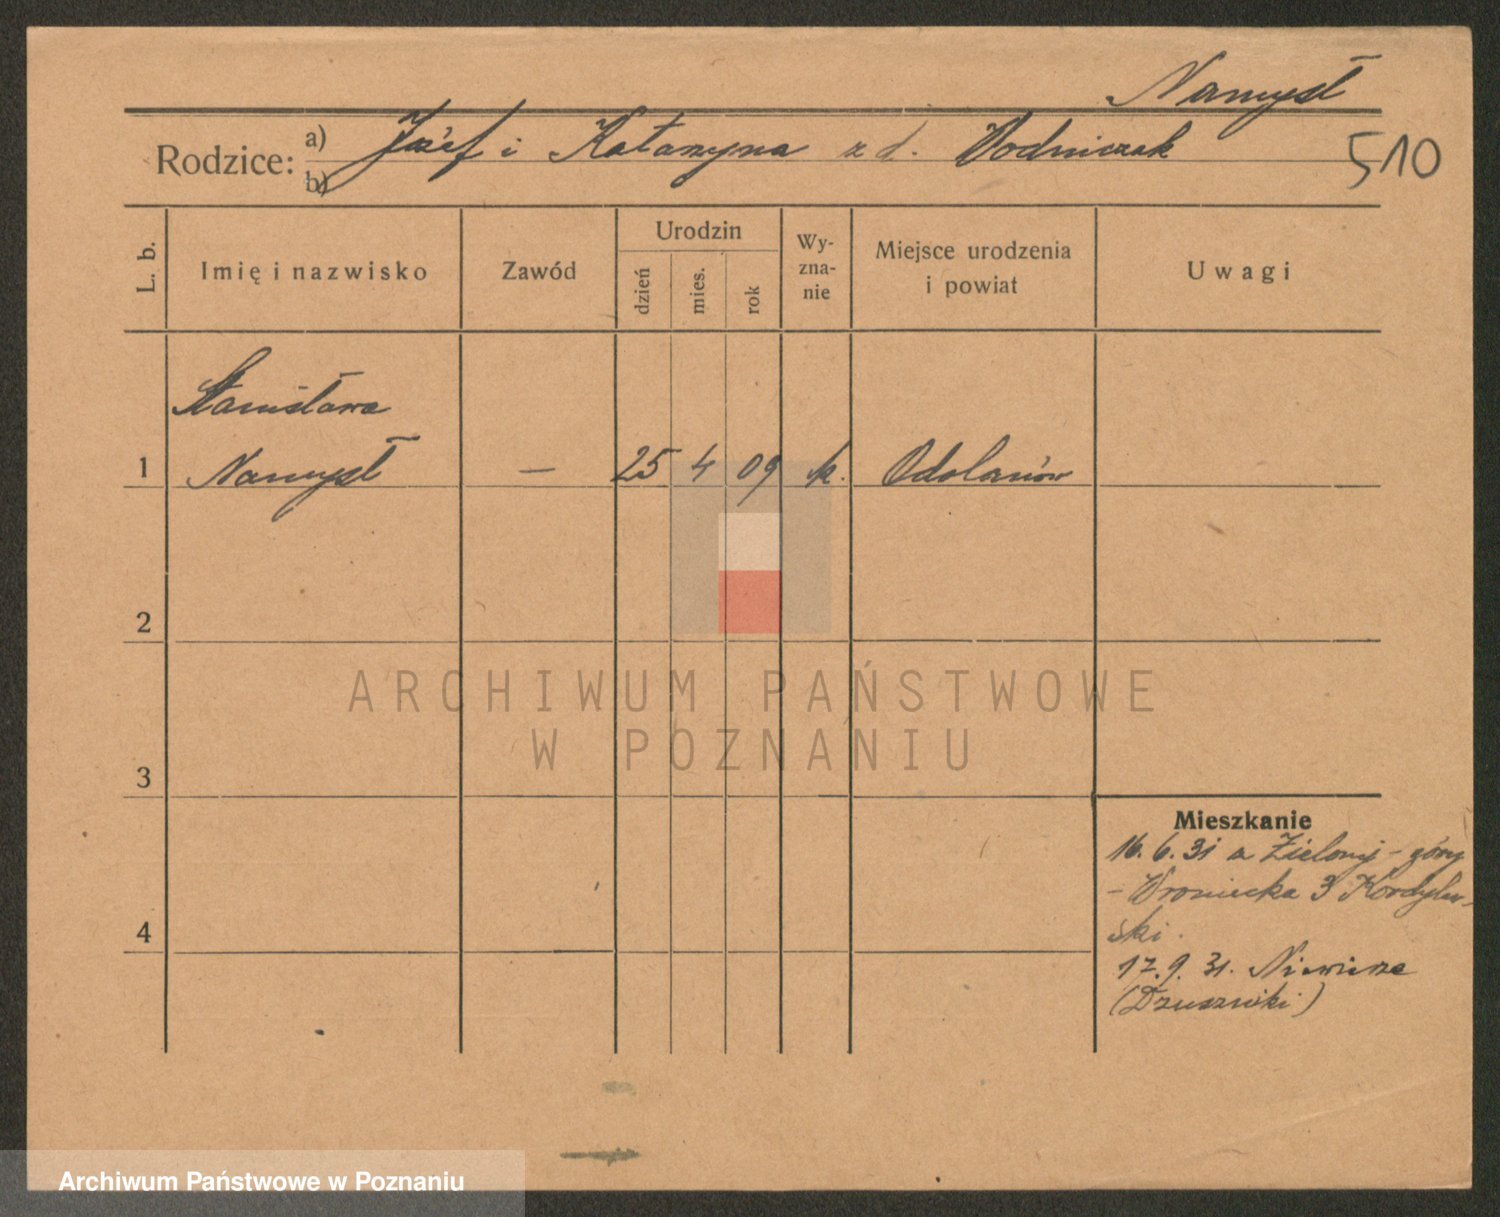 Namysł
Rodzice: a) Józef i Katarzyna z d. Wodniczak
b)
510
L. b.
Imię i nazwisko
Zawód
Urodzin
dzień
mies.
rok
Wy-
zna-
nie
Miejsce urodzenia
i powiat
Uwagi
Stanisława
1 Namysł — 25 4 09 k. Odolanów
2
3
4
Mieszkanie
16. 6. 31 z Zielonej-góry
- Wroniecka 3 Kordylew-
ski.
17. 9. 31. Niewierz
(Duszniki)
ARCHIWUM PAŃSTWOWE
W POZNANIU
Archiwum Państwowe w Poznaniu